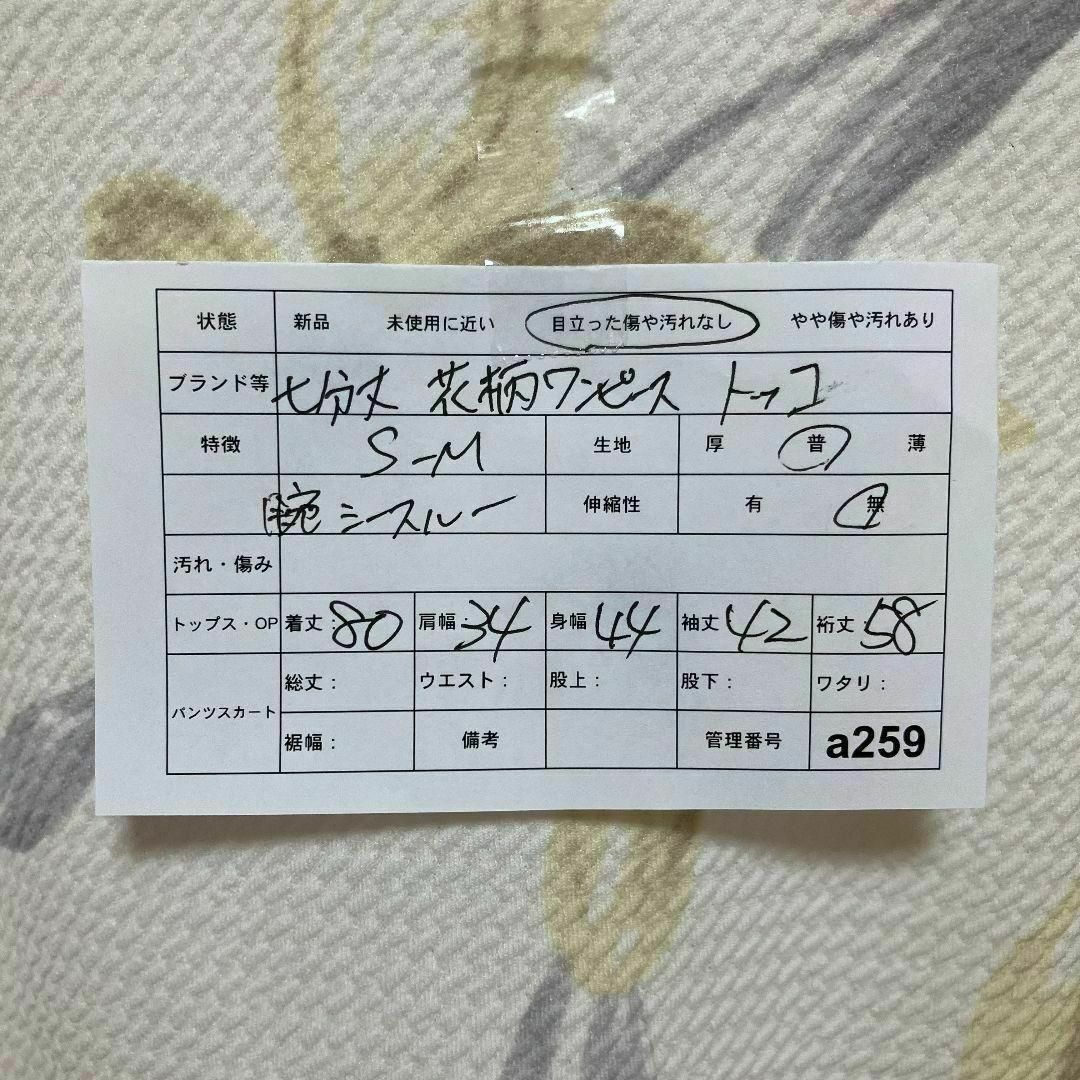 状態 新品 未使用に近い 目立った傷や汚れなし やや傷や汚れあり
ブランド等 七分丈 花柄ワンピース トッコ
特徴 S-M 生地 厚 普 薄
腕シースルー 伸縮性 有 無
汚れ・傷み
トップス・OP 着丈:80 肩幅:34 身幅44 袖丈42 裄丈:58
パンツスカート 総丈: ウエスト: 股上: 股下: ワタリ:
裾幅: 備考 管理番号 a259